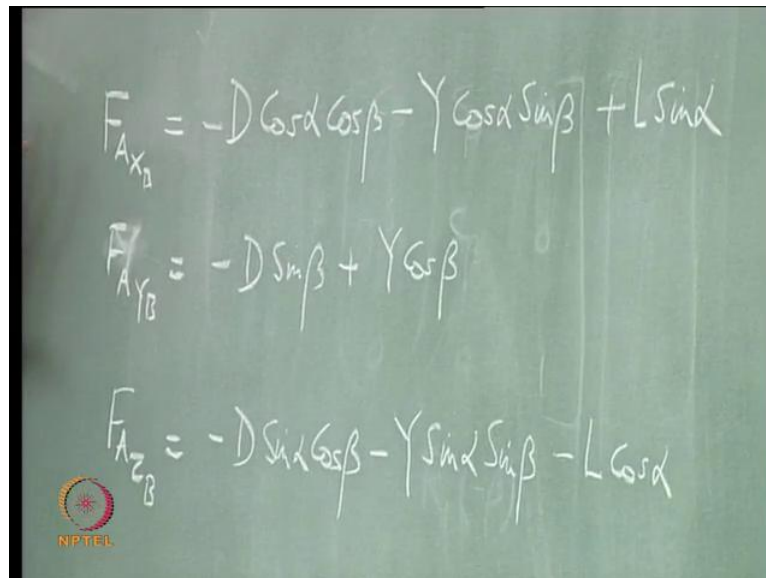 F_{A_{X_B}} = -D Cosα Cosβ - Y Cosα Sinβ + L Sinα
F_{A_{Y_B}} = -D Sinβ + Y Cosβ
F_{A_{Z_B}} = -D Sinα Cosβ - Y Sinα Sinβ - L Cosα
NPTEL